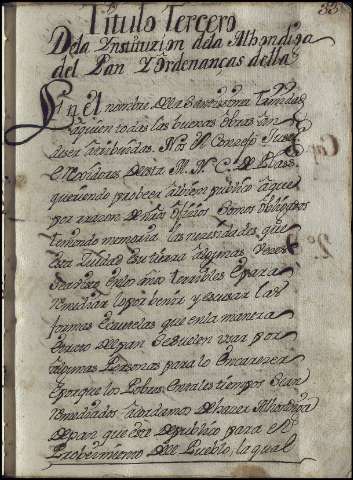 33
Titulo Tercero
Dela Ynstituzion dela Alhondiga
del Pan Y Ordenanças della
En el nombre dela Santissima Trinidad
aquien todas las buenas obras han
deser atribuidas. Nos el Conçejo Justª
e Rexidores desta M. N. C. de
queriendo probeer albien publico aque
por raçon de nros ofiçios somos obligados
teniendo memoria las neçesidades, que
esta Ziudad es tierra algunas Vezes
en los años terribles e para
Remediar lo por benir y escusar las
formas e cautelas que en la manera
e trato del pan se suelen usar por
algunas Personas para lo Encareçer
e porque los Pobres en tales tiempos sean
Remediados acordamos de haçer Alhondiga
de pan que este de publico para el
Probeimiento del Pueblo, la qual